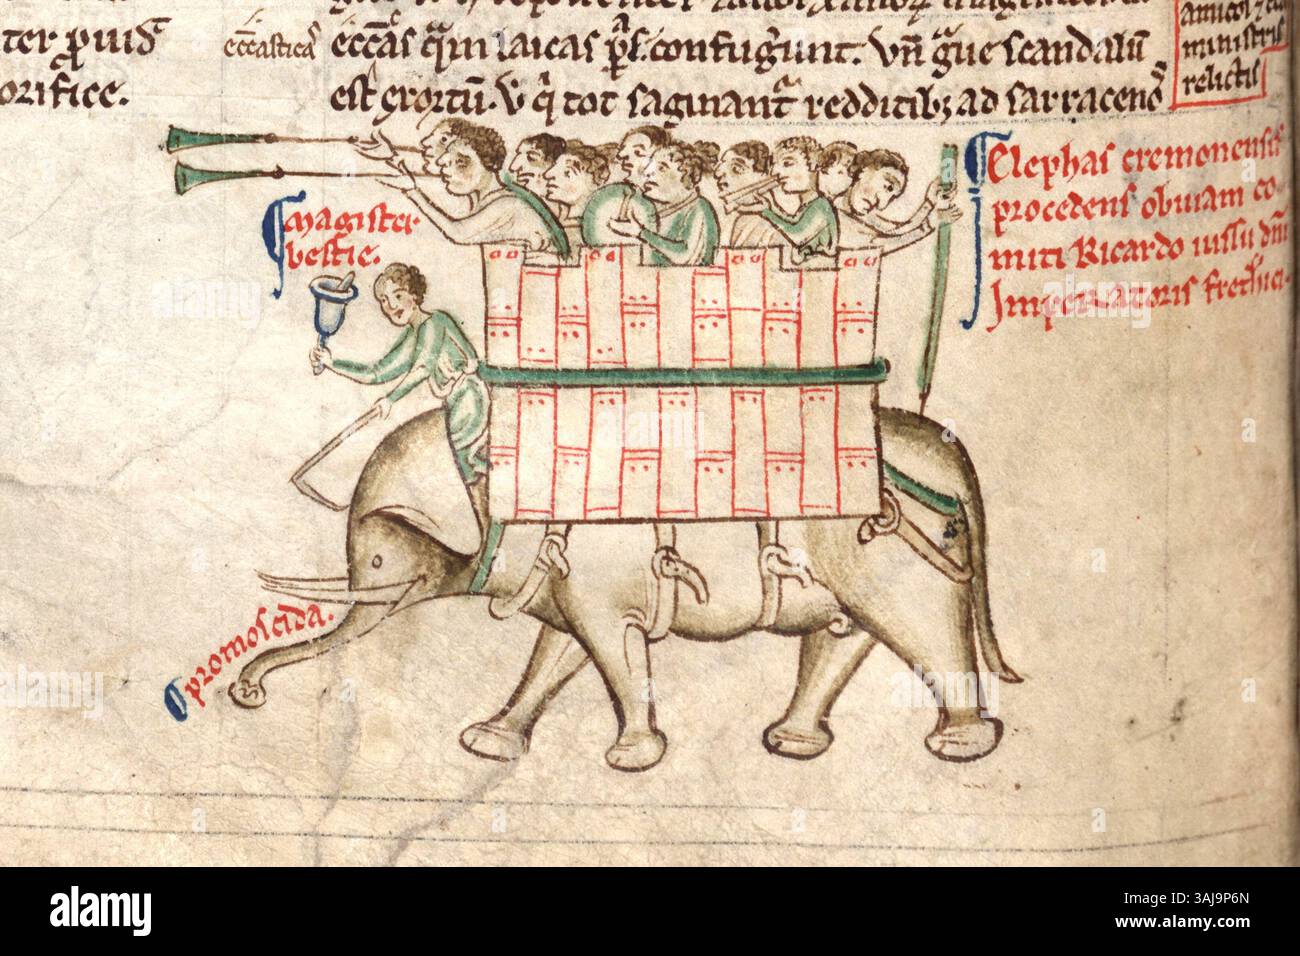 ter ꝑuiḋ
orifice.
ecc̄astica᷒
ecc̄as q̄m laicas p̄s. confugiunt. Vn̄ g̃ue scandalū
est exortū. ꝙ tot saginant᷑ redditibꝫ ad sarracenos
amicos ⁊
ministris
relictis
magister
bestie.
Elephas cremonensis
procedens obuiam co-
miti Ricardo iussu dn̄i
Imperatoris fretherici.
promoscida.
alamy
Image ID: 3AJ9P6N
www.alamy.com